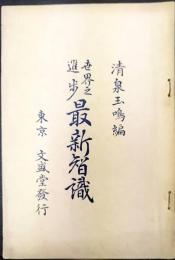 清泉玉鳴編
世界之進歩
最新智識
東京 文盛堂發行